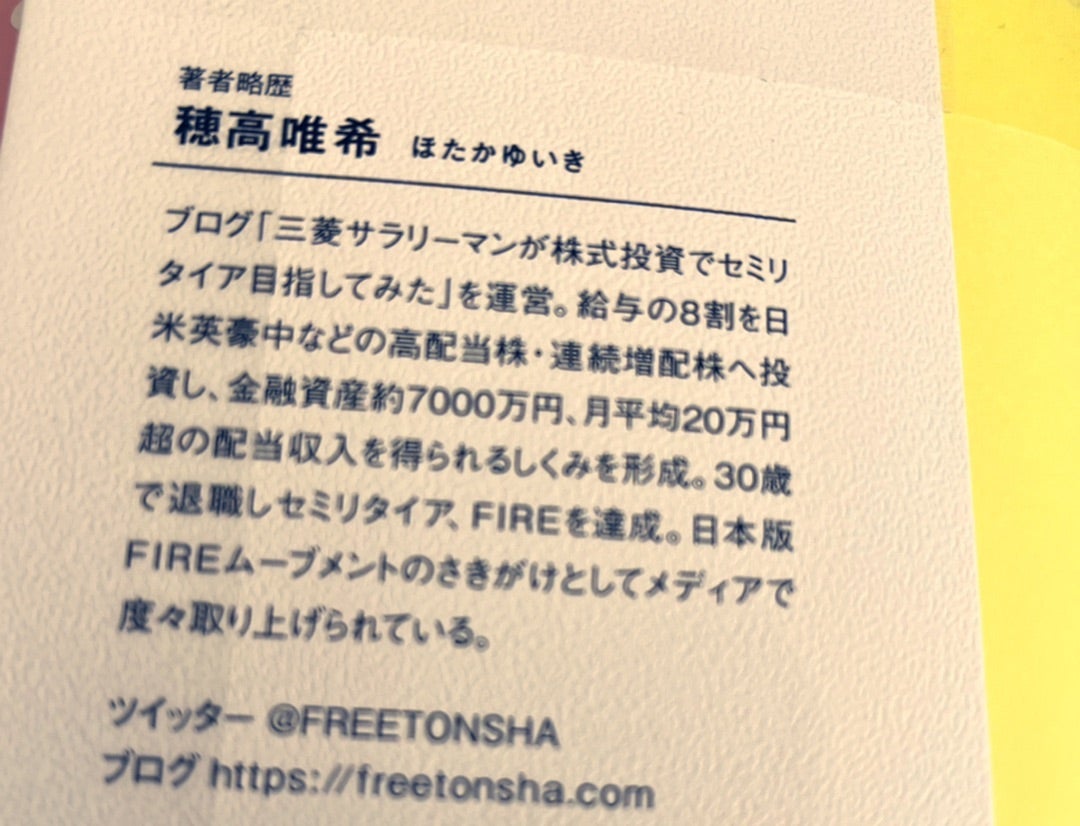 著者略歴
穂高唯希 ほたかゆいき
ブログ「三菱サラリーマンが株式投資でセミリ
タイア目指してみた」を運営。給与の8割を日
米英豪中などの高配当株・連続増配株へ投
資し、金融資産約7000万円、月平均20万円
超の配当収入を得られるしくみを形成。30歳
で退職しセミリタイア、FIREを達成。日本版
FIREムーブメントのさきがけとしてメディアで
度々取り上げられている。
ツイッター @FREETONSHA
ブログ https://freetonsha.com